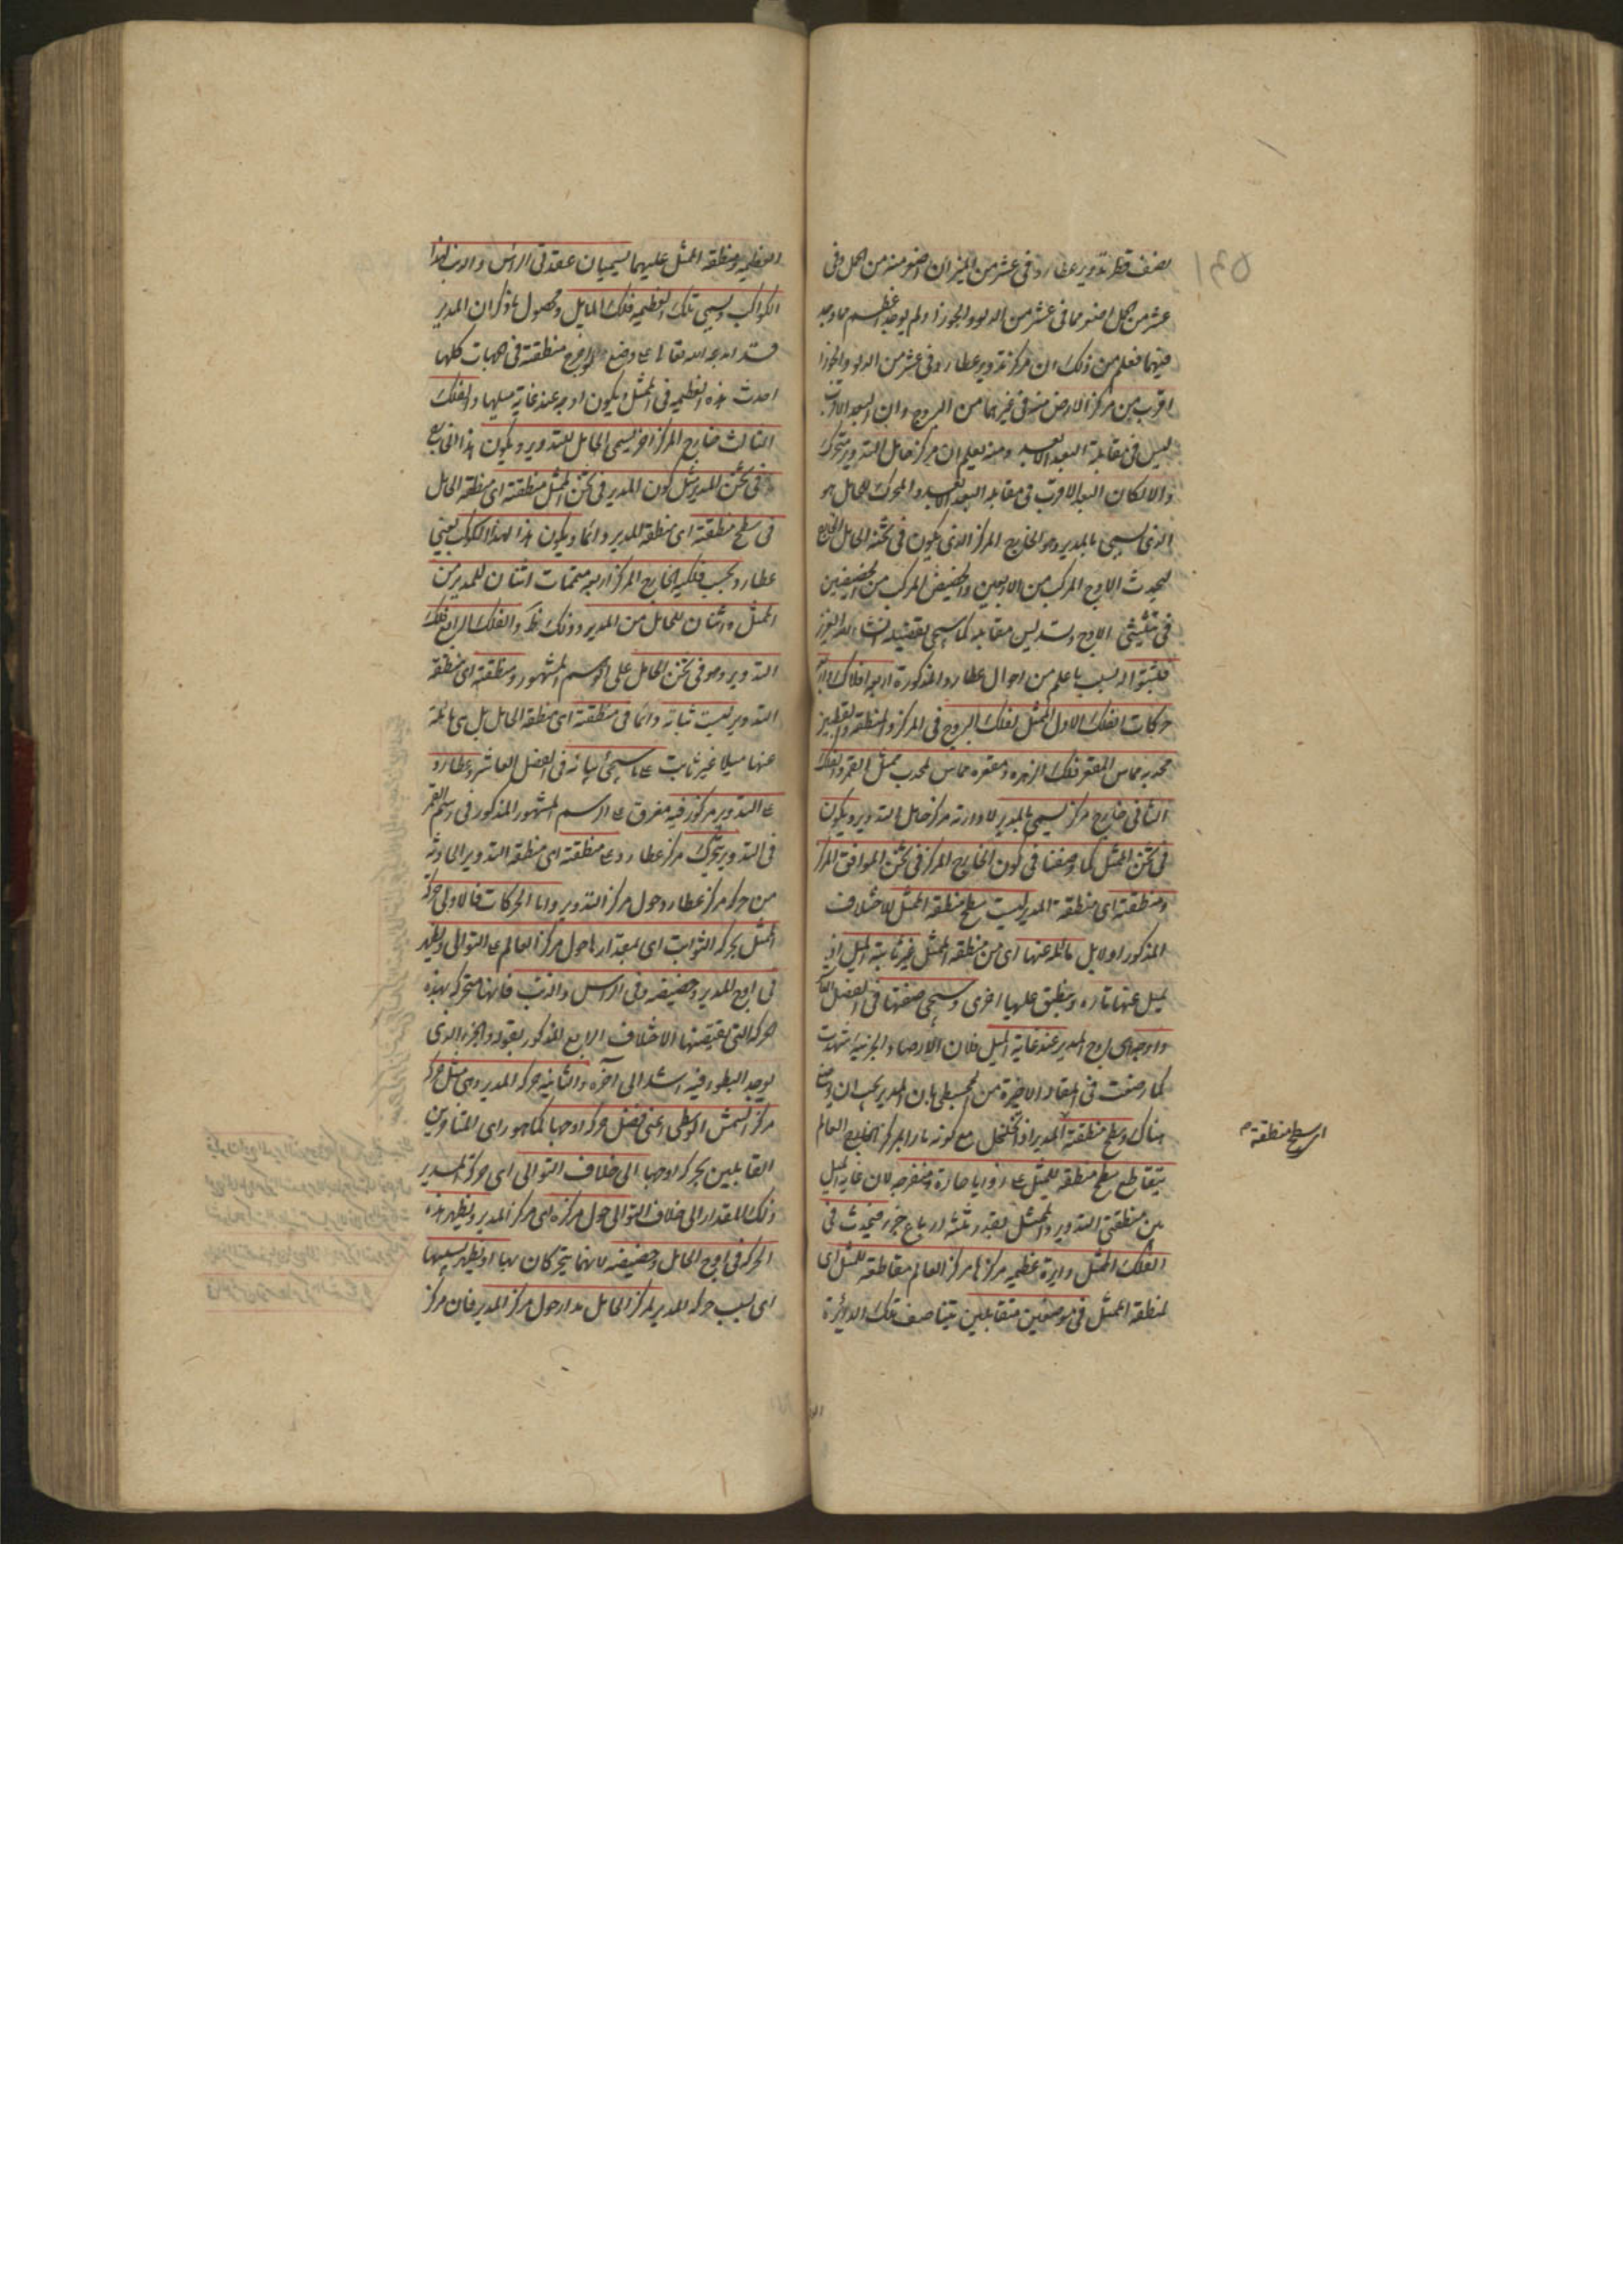 نصف قطر تدوير عطارد في عشر من الميزان اصغر منه من الحمل وفي
عشر من الحمل اصغر مما في عشر من الدلو والجوزا ولم يوجد اعظم مما وجد
فيهما فعلم من ذلك ان مركز تدوير عطارد في عشر من الدلو والجوزا
اقرب من مركز الارض منه في غيرهما من البروج وان البعد الاقرب
ليس في مقابلة البعد الابعد ومنه يعلم ان مركز حامل التدوير متحرك
والا لكان البعد الاقرب في مقابلة البعد الابعد والمحرك للحامل هو
الذي يسمى بالمدير وهو الخارج المركز الذي يكون في ثخنه الحامل الخارج
ليحدث الاوج المركب من الاوجين والحضيض المركب من الحضيضين
في تثليثي الاوج وتسديس مقابله كما سيجى تفصيله انشاء الله العزيز
فاثبتوا له بسبب ما علم من احوال عطارد المذكورة اربعة افلاك واربع
حركات الفلك الاول الممثل لفلك البروج في المركز والمنطقة والقطبين
محدبه مماس لمقعر فلك الزهرة ومقعره مماس لمحدب ممثل القمر والفلك
الثاني خارج مركز يسمى بالمدير لادارته مركز حامل التدوير ويكون
في ثخن الممثل كما وصفنا في كون الخارج المركز في ثخن الموافق المركز
ومنطقته اي منطقة المدير ليست سطح منطقة الممثل للاختلاف
المذكور اولا بل مائلة عنها اي من منطقة الممثل غير ثابتة الميل اذ
يميل عنها تارة وينطبق عليها اخرى وسيجى صفتها في الفصل العاشر
واوجه اي اوج المدير عند غاية الميل فلان الارصاد الجزئية شهدت
كما وصفت في المقالة الاخيرة من المجسطي بان المدير يجب ان وضع
هناك وسطح منطقة المدير اذا تخيل مع كونه مارا بمركز الخارج العالم
يتقاطع سطح منطقة الممثل على زوايا حادة ومنفرجة لان غاية الميل
بين منطقتي التدوير والممثل بقدر ثلثة ارباع جزء فيحدث في
الفلك الممثل دايرة عظيمة مركزها مركز العالم مقاطعة للممثل اي
لمنطقة الممثل في موضعين متقابلين يتناصف تلك الدائرة
اي سطح منطقة
العظيمة ومنطقة الممثل عليهما يسميان عقدتي الراس والذنب لهذا
الكواكب ويسمى تلك العظيمة فلك المايل ومحصول ما ذكر ان المدير
احدث هذه العظيمة في الممثل ويكون اوجه عند غاية ميلها والفلك
الثالث خارج المركز اخر يسمى الحامل للتدوير ويكون هذا الخارج
في ثخن المدير مثل كون المدير في ثخن الممثل منطقته اي منطقة الحامل
في سطح منطقته اي منطقة المدير دائما ويكون هذا لهذا الكوكب يعني
عطارد بحسب فلكيه الخارج المركز اربعة متممات اثنان للمدير من
الممثل واثنان للحامل من المدير وذلك ظ والفلك الرابع فلك
التدوير وهو في ثخن الحامل على الرسم المشهور ومنطقته اي منطقة
التدوير ليست ثابتة دائما في منطقته اي منطقة الحامل بل هي مائلة
عنها ميلا غير ثابت على ما سيجى بيانه في الفصل العاشر وعطارد
على التدوير مركوز فيه مغرق على الرسم المشهور المذكور في رسم القمر
في التدوير يتحرك مركز عطارد على منطقته اي منطقة التدوير الحادثة
من حركة مركز عطارد حول مركز التدوير واما الحركات فالاولى حركة
الممثل بحركة الثوابت اي بمقدارها حول مركز العالم على التوالي ويظهر
في اوج المدير وحضيضه وفي الراس والذنب فانها متحركة بهذه
الحركة التي يقتضيها الاختلاف الرابع المذكور بقوله والجزء الذي
يوجد البطؤ فيه اشد الى آخره والثانية حركة المدير وهي مثل حركة
مركز الشمس الوسطى اعني فضل حركة اوجها كما هو راي المتاخرين
القايلين بحركة اوجها الى خلاف التوالي اي حركة المدير
ذلك المقدار الى خلاف التوالي حول مركزه اي مركز المدير ويظهر هذه
الحركة في اوج الحامل وحضيضه لانهما يتحركان بها او يظهر بسببها
اي بسبب حركة المدير لمركز الحامل مدار حول مركز المدير فان مركز